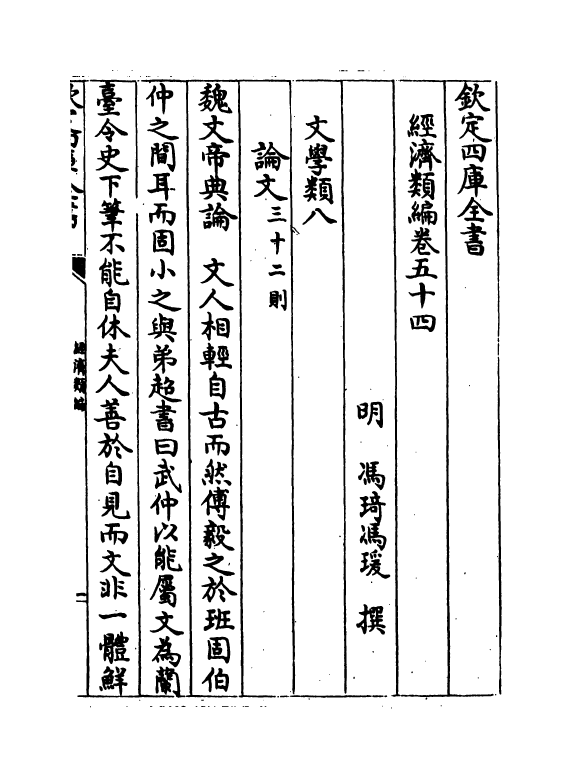 欽定四庫全書
經濟類編卷五十四
明　馮琦馮瑗　撰
文學類八
論文三十二則
魏文帝典論　文人相輕自古而然傅毅之於班固伯
仲之間耳而固小之與弟超書曰武仲以能屬文為蘭
臺令史下筆不能自休夫人善於自見而文非一體鮮
經濟類編